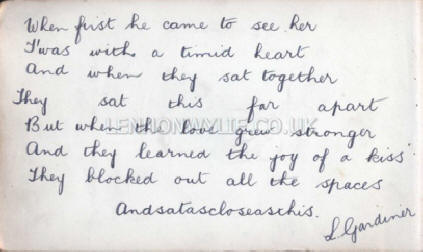 When first he came to see her
T'was with a timid heart
And when they sat together
They sat this far apart
But when the love grew stronger
LENNONWYLIE.CO.UK
And they learned the joy of a kiss
They blocked out all the spaces
Andsatascloseasthis.
L Gardiner